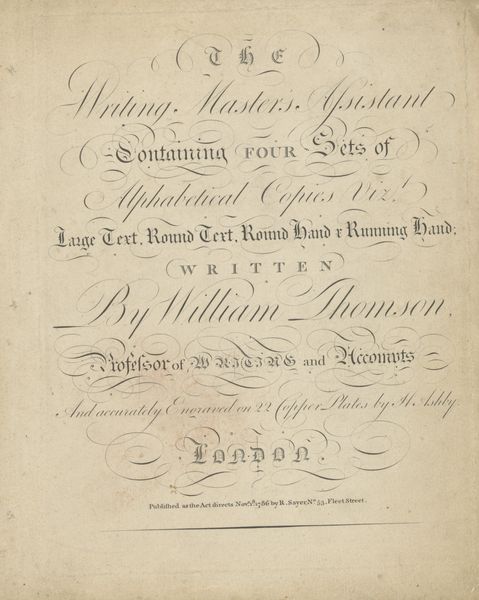 THE
Writing Master's Assistant
Containing FOUR Sets of
Alphabetical Copies Viz.t
Large Text, Round Text, Round Hand & Running Hand;
WRITTEN
By William Thomson,
Professor of WRITING and Accompts
And accurately Engraved on 22 Copper Plates by H. Ashby.
LONDON.
Publish'd as the Act directs Nov. 1786 by R. Sayer, No. 53, Fleet Street.